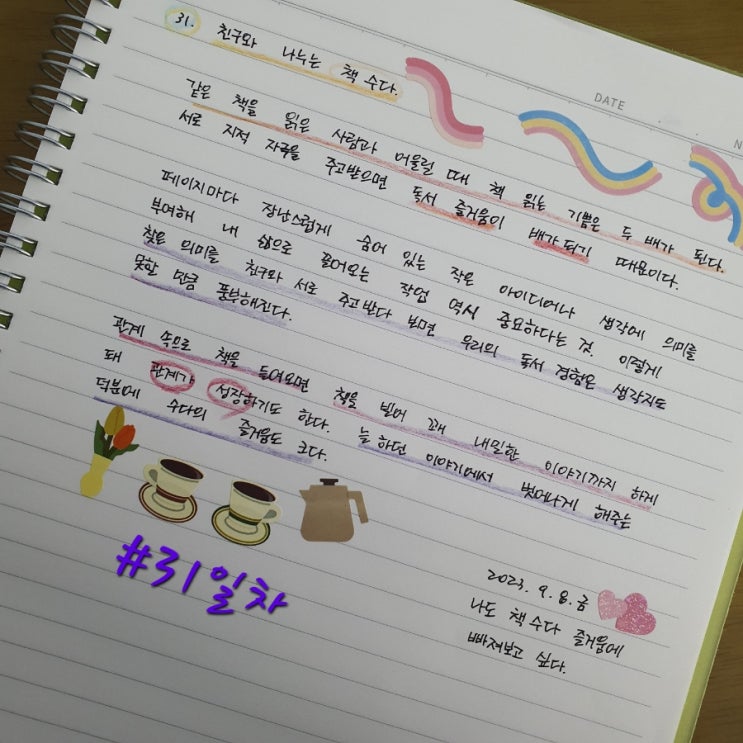 31. 친구와 나누는 책 수다.
DATE
N
같은 책을 읽은 사람과 어울릴 때 책 읽는 기쁨은 두 배가 된다.
서로 지적 자극을 주고받으면 독서 즐거움이 배가 되기 때문이다.
페이지마다 장난스럽게 숨어 있는 작은 아이디어나 생각에 의미를
부여해 내 삶으로 끌어오는 작업 역시 중요하다는 것. 이렇게
찾은 의미를 친구와 서로 주고 받다 보면 우리의 독서 경험은 생각지도
못할 만큼 풍부해진다.
관계 속으로 책을 들여오면 책을 빌어 꽤 내밀한 이야기까지 하게
돼 관계가 성장하기도 한다. 늘 하던 이야기에서 벗어나게 해주는
덕분에 수다의 즐거움도 크다.
#31일차
2023. 9. 8. 금
나도 책 수다 즐거움에
빠져보고 싶다.